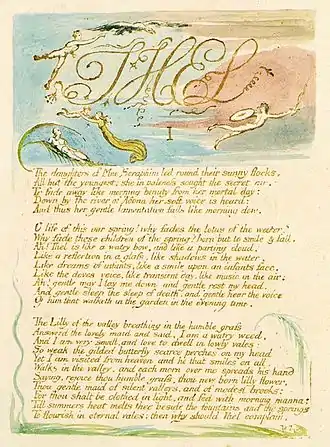 THEL
The daughters of Mne Seraphim led round their sunny flocks.
All but the youngest; she in paleness sought the secret air.
To fade away like morning beauty from her mortal day:
Down by the river of Adona her soft voice is heard:
And thus her gentle lamentation falls like morning dew.
O life of this our spring! why fades the lotus of the water?
Why fade these children of the spring? born but to smile & fall.
Ah! Thel is like a watry bow, and like a parting cloud,
Like a reflection in a glass, like shadows in the water,
Like dreams of infants, like a smile upon an infants face,
Like the doves voice, like transient day, like music in the air:
Ah! gentle may I lay me down and gentle rest my head.
And gentle sleep the sleep of death, and gentle hear the voice
Of him that walketh in the garden in the evening time.
The Lilly of the valley breathing in the humble grass
Answerd the lovely maid and said; I am a watry weed,
And I am very small, and love to dwell in lowly vales:
So weak the gilded butterfly scarce perches on my head
Yet I am visited from heaven and he that smiles on all
Walks in the valley, and each morn over me spreads his hand
Saying, rejoice thou humble grass, thou new-born lilly flower,
Thou gentle maid of silent valleys, and of modest brooks:
For thou shalt be clothed in light, and fed with morning manna:
Till summers heat melts thee beside the fountains and the springs
To flourish in eternal vales: then why should Thel complain,